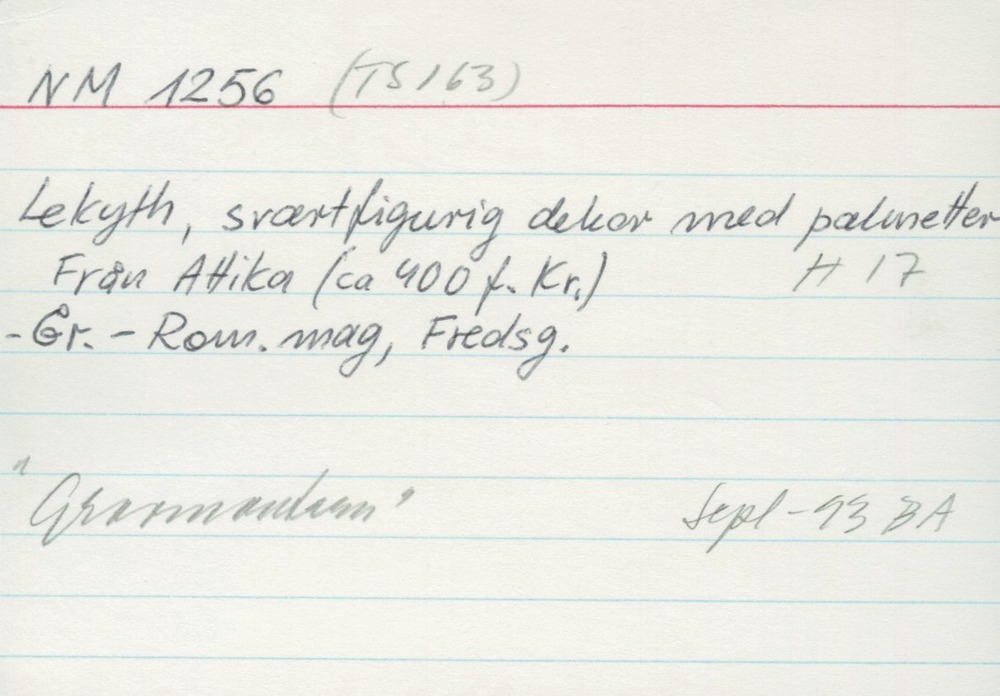 NM 1256 (TS 163)
Lekyth, svartfigurig dekor med palmetter
Från Attika (ca 400 f. Kr.) H 17
- Gr. - Rom. mag, Fredsg.
Sept - 93 BA